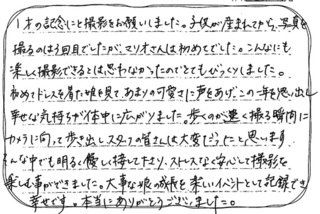 1才の記念にと撮影をお願いしました。子供が産まれてから、写真を
撮るのは3回目でしたが、マリオさんは初めてでした。こんなにも
楽しく撮影できるとは思わなかったのでとてもびっくりしました。
初めてドレスを着た娘を見て、あまりの可愛さに声をあげ、この一年を思い出し
幸せな気持ちが体中に広がりました。歩くのが速く撮る瞬間に
カメラに向って歩き出し、スタッフの皆さんは大変だったと思います
そんな中でも明るく優しく接して下さり、ストレスなく安心して撮影を
楽しむ事ができました。大事な娘の成長を楽しいイベントとして記録でき
幸せです。本当にありがとうございました。